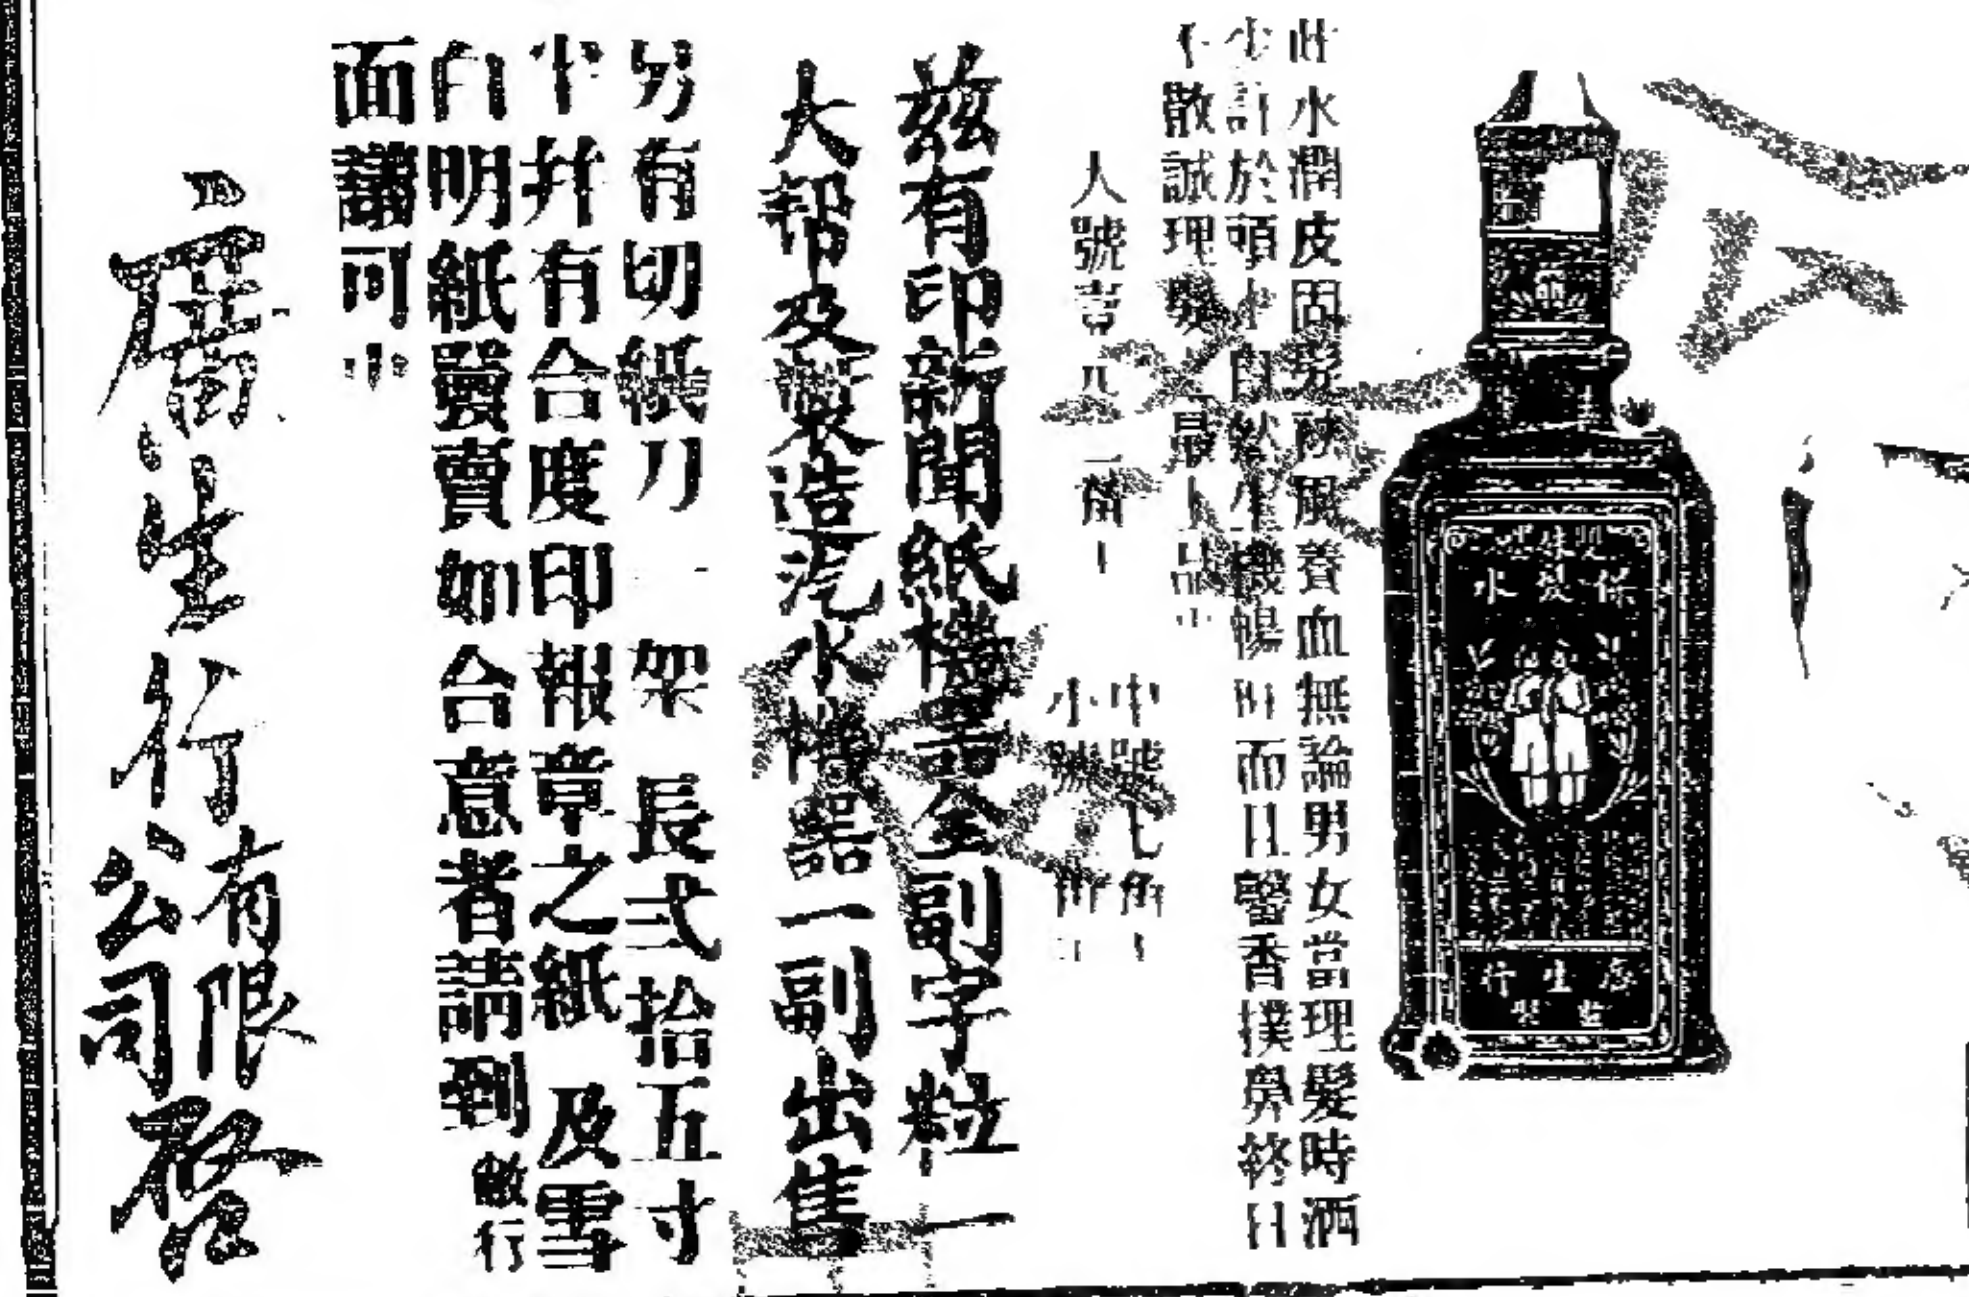 保髮水
生行
監製
此水潤皮固髮 風養血無論男女當理髮時洒
少許於頭上自然生機暢 而且馨香撲鼻終日
不散誠理髮 最上品
大號壹元 角
中號七角
小號
茲有印新聞紙機器全副字粒一
大幫及製造汽水機器一副出售
另有切紙刀一架長弍拾五寸
半幷有合度印報章之紙及雪
白明紙發賣如合意者請到敝行
面議可也
廣生行有限公司啓